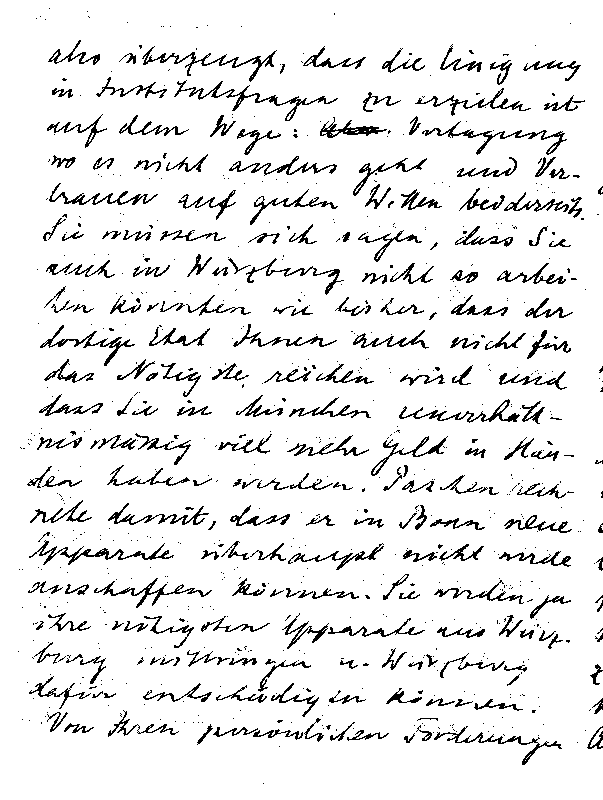 also überzeugt, dass die Einigung
in Institutsfragen zu erzielen ist
auf dem Wege: Vertagung
wo es nicht anders geht und Ver-
trauen auf guten Willen beiderseits.
Sie müssen sich sagen, dass Sie
auch in Würzburg nicht so arbei-
ten könnten wie bisher, dass der
dortige Etat Ihnen auch nicht für
das Nötigste reichen wird und
dass Sie in München unverhält-
nismässig viel mehr Geld in Hän-
den haben werden. Paschen rech-
nete damit, dass er in Bonn neue
Apparate überhaupt nicht werde
anschaffen können. Sie werden ja
ihre nötigsten Apparate aus Würz-
burg mitbringen u. Würzburg
dafür entschädigen können.
Von Ihren persönlichen Forderungen